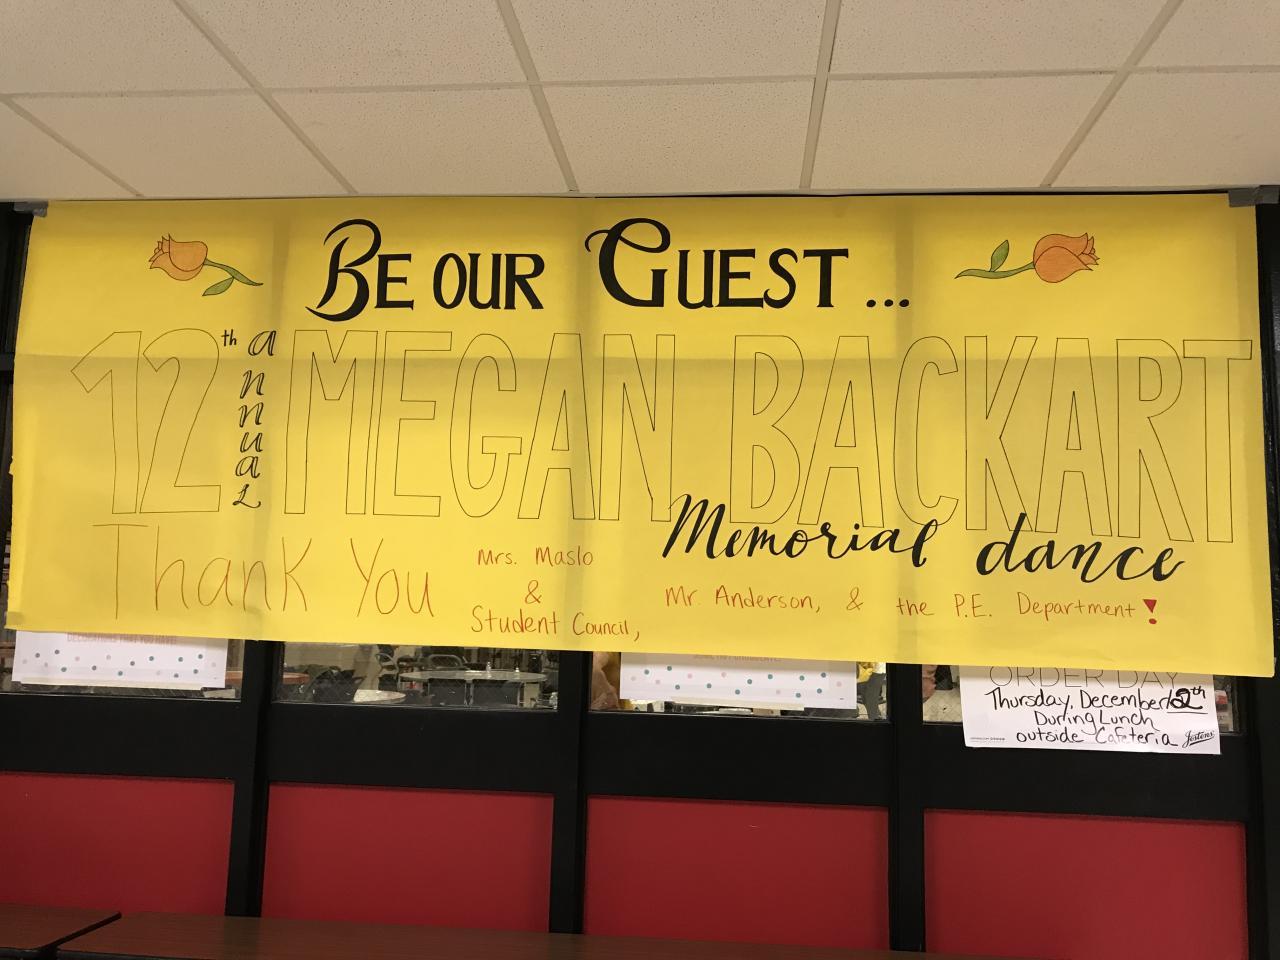 Be our Guest...
12th annual MEGAN BACKART
Memorial dance
Thank You Mrs. Maslo & Student Council, Mr. Anderson, & the P.E. Department!
ORDER DAY
Thursday, December 12th
During Lunch
outside Cafeteria
Jostens